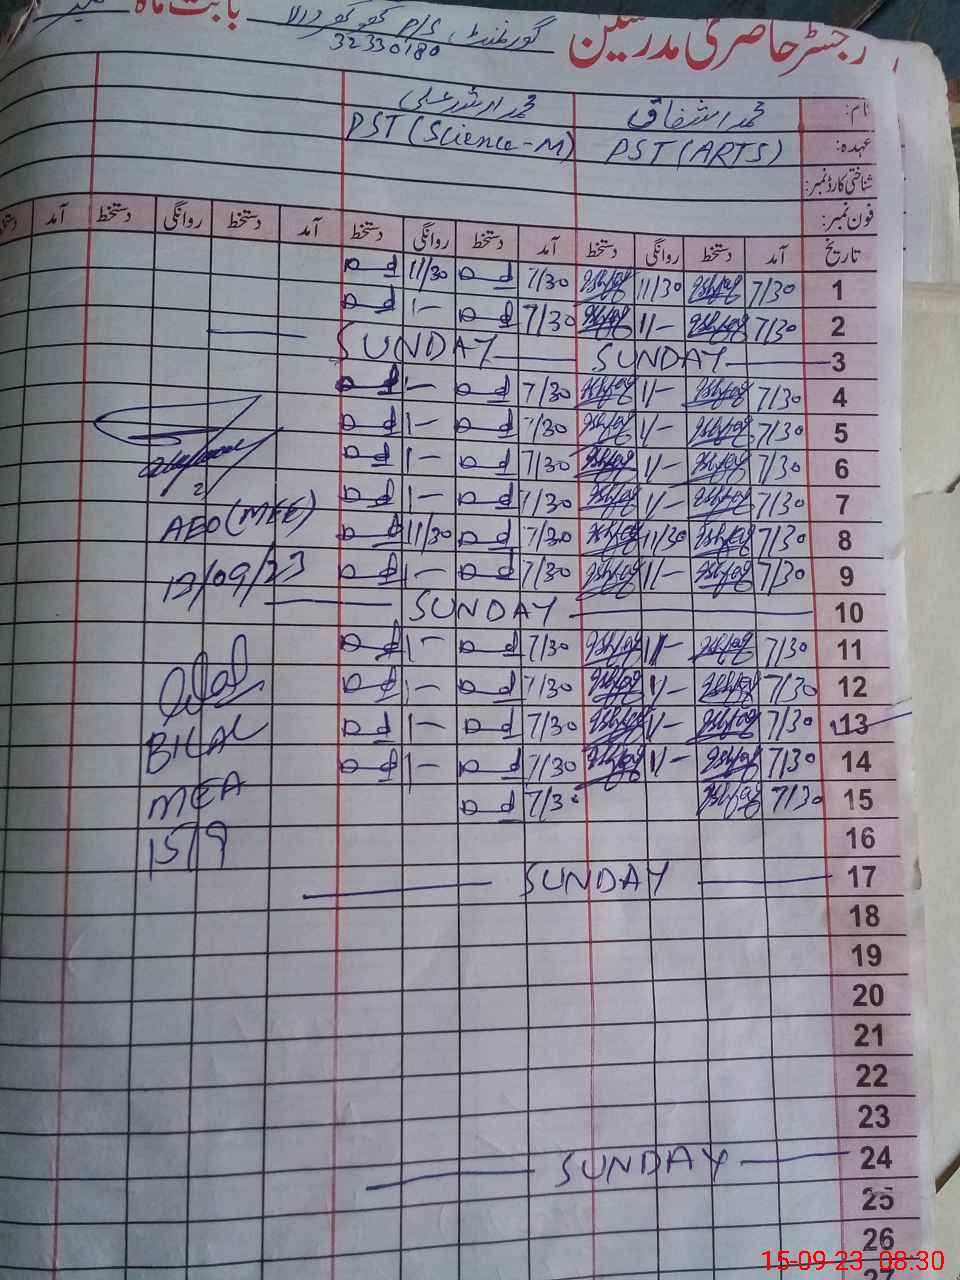 رجسٹر حاضری مدرسین گورنمنٹ P/S بابت ماہ
32330180
نام: محمد اشفاق محمد ارشد علی
عہدہ: PST (ARTS) PST (Science-M)
شناختی کارڈ نمبر:
فون نمبر:
تاریخ آمد دستخط روانگی دستخط آمد دستخط روانگی دستخط آمد دستخط روانگی دستخط آمد دستخط
1 7/30 11/30 7/30 11/30
2 7/30 1/- 7/30 1-
3 SUNDAY SUNDAY
4 7/30 1/- 7/30 1-
5 7/30 1/- 7/30 1-
6 7/30 1/- 7/30 1-
7 7/30 1/- 7/30 1-
8 7/30 11/30 7/30 11/30
AEO (MEE)
9 7/30 1/- 7/30 1-
12/09/23
10 SUNDAY
11 7/30 1/- 7/30 1-
12 7/30 1/- 7/30 1-
13 7/30 1/- 7/30 1-
BILAL
14 7/30 1/- 7/30 1-
MEA
15 7/30 7/30
15/9
16
17 SUNDAY
18
19
20
21
22
23
24 SUNDAY
25
26
27
15-09-23 08:30